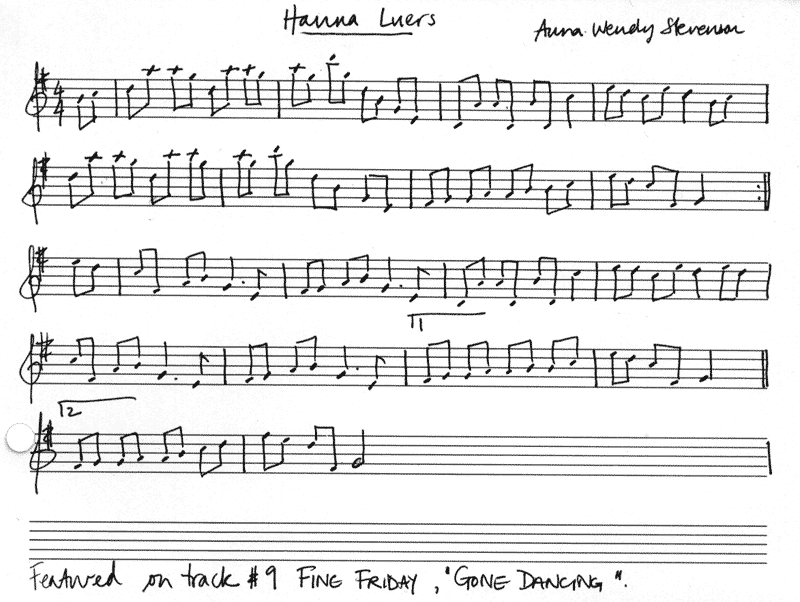 Hanna Luers
Anna Wendy Stevenson
4
4
1
2
Featured on track #9 FINE FRIDAY, "GONE DANCING".